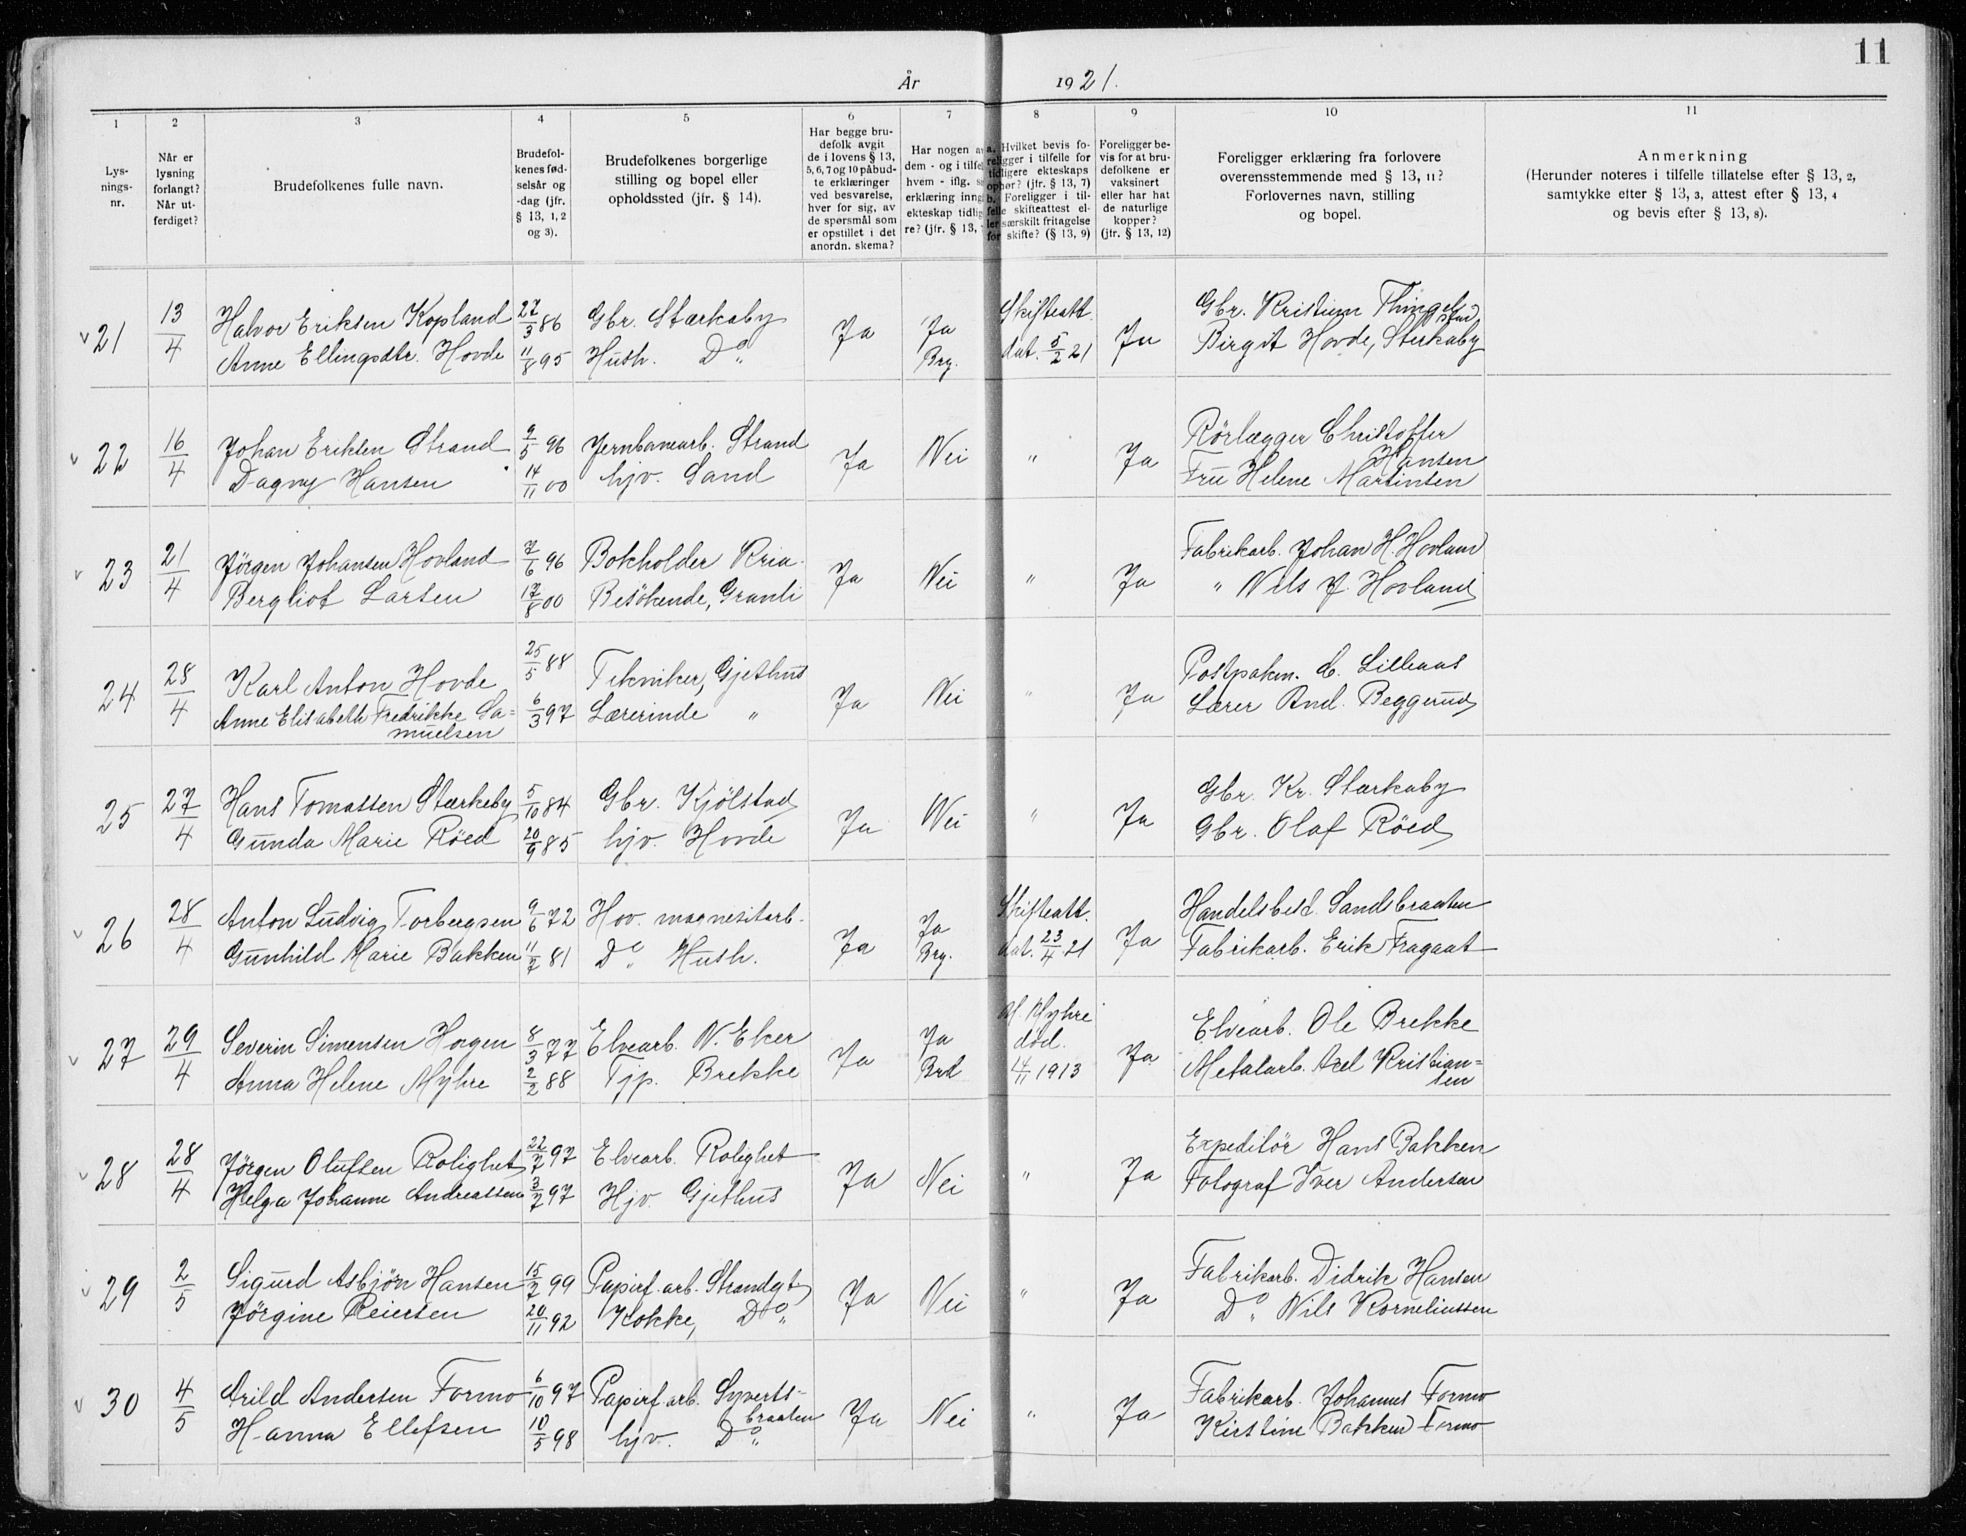 11
År 1921.
1 2 3 4 5 6 7 8 9 10 11
Lys-
nings-
nr.
Når er
lysning
forlangt?
Når ut-
ferdiget?
Brudefolkenes fulle navn.
Brudefol-
kenes fød-
selsår og
-dag (jfr.
§ 13, 1, 2
og 3).
Brudefolkenes borgerlige
stilling og bopel eller
opholdssted (jfr. § 14).
Har begge bru-
defolk avgit
de i lovens § 13,
5, 6, 7 og 10 påbud-
te erklæringer
ved besvarelse,
hver for sig, av
de spørsmål som
er opstillet i det
anordn. skema?
Har nogen a
dem - og i tilfel
hvem - iflg. s
erklæring inng
ekteskap tidlig
re? (jfr. § 13,
a. Hvilket bevis fo-
religger i tilfelle for
tidligere ekteskaps
ophør? (jfr. § 13, 7)
b. Foreligger i til-
felle skifteattest el-
ler særskilt fritagelse
for skifte? (§ 13, 9)
Foreligger be-
vis for at bru-
defolkene er
vaksinert
eller har hat
de naturlige
kopper?
(jfr. § 13, 12)
Foreligger erklæring fra forlovere
overensstemmende med § 13, 11?
Forlovernes navn, stilling
og bopel.
Anmerkning
(Herunder noteres i tilfelle tillatelse efter § 13, 2,
samtykke efter § 13, 3, attest efter § 13, 4
og bevis efter § 13, 8).
v 21 13/4 Halvor Eriksen Kopland 27/3 86 Gbr. Stærkaby Ja Ja Skifteatt. Ja Gbr. Kristian Thingelstad
Anne Ellingsdtr. Hovde 11/8 95 Hush. Do " Brg. dat. 5/2 21 Birgit Hovde, Sterkaby
v 22 16/4 Johan Eriksen Strand 9/5 96 Jernbanearb. Strand Ja Nei " Ja Rörlægger Christoffer
Hansen
Dagny Hansen 14/11 00 hjv. Sand Fru Helene Martinsen
v 23 21/4 Jörgen Johansen Hovland 7/6 96 Bokholder Kria. Ja Nei " Ja Fabrikarb. Johan H. Hovland
Bergliot Larsen 17/8 00 Besökende, Granli " Nils J. Hovland
24 28/4 Karl Anton Hovde 25/5 88 Tekniker, Gjethus Ja Nei " Ja Postpakm. C. Lilleaas
Anne Elisabeth Fredrikke Sa= 6/3 97 Lærerinde " Lærer And. Beggerud
muelsen
25 27/4 Hans Tomassen Stærkeby 5/10 84 Gbr. Kjölstad Ja Nei " Ja Gbr. Kr. Stærkaby
Gunda Marie Röed 20/9 85 hjv. Hovde Gbr. Olaf Röed
v 26 28/4 Anton Ludvig Torbergsen 9/6 72 Hov. magnesitarb. Ja Ja Skifteatt. Ja Handelsbest. Sandsbraaten
Gunhild Marie Bakken 11/7 81 Do. Hush. Brg. dat. 23/4 21 Fabrikarb. Erik Fragaat
v 27 29/4 Severin Simensen Horgen 8/3 77 Elvearb. N. Eker Ja Ja Myhre Ja Elvearb. Ole Brekke
död.
Anna Helene Myhre 2/2 88 Tjp. Brekke Brd 14/11 1913 Metalarb. Axel Kristian=
sen
v 28 28/4 Jörgen Olufsen Rolighet 22/7 97 Elvearb. Rolighet Ja Nei " Ja Expeditör Hans Bakken
Helga Johanne Andreassen 3/7 97 Hjv. Gjethus Fotograf Iver Andersen
v 29 2/5 Sigurd Asbjön Hansen 15/7 99 Papirf. arb. Strandgt Ja Nei " Ja Fabrikarb. Didrik Hansen
Jörgine Reiersen 20/11 92 Kokke, Do " Do " Nils Korneliussen
v 30 4/5 Arild Andersen Formo 6/10 97 Papirf. arb. Syverts- Ja Nei " Ja Fabrikarb. Johannes Formo
braaten
Hanna Ellefsen 10/5 98 hjv. Do " Kirstine Bakken Formo